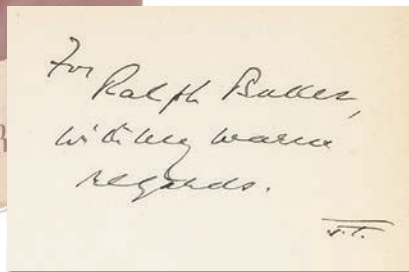 For
Ralph Buller,
with my warm
regards.